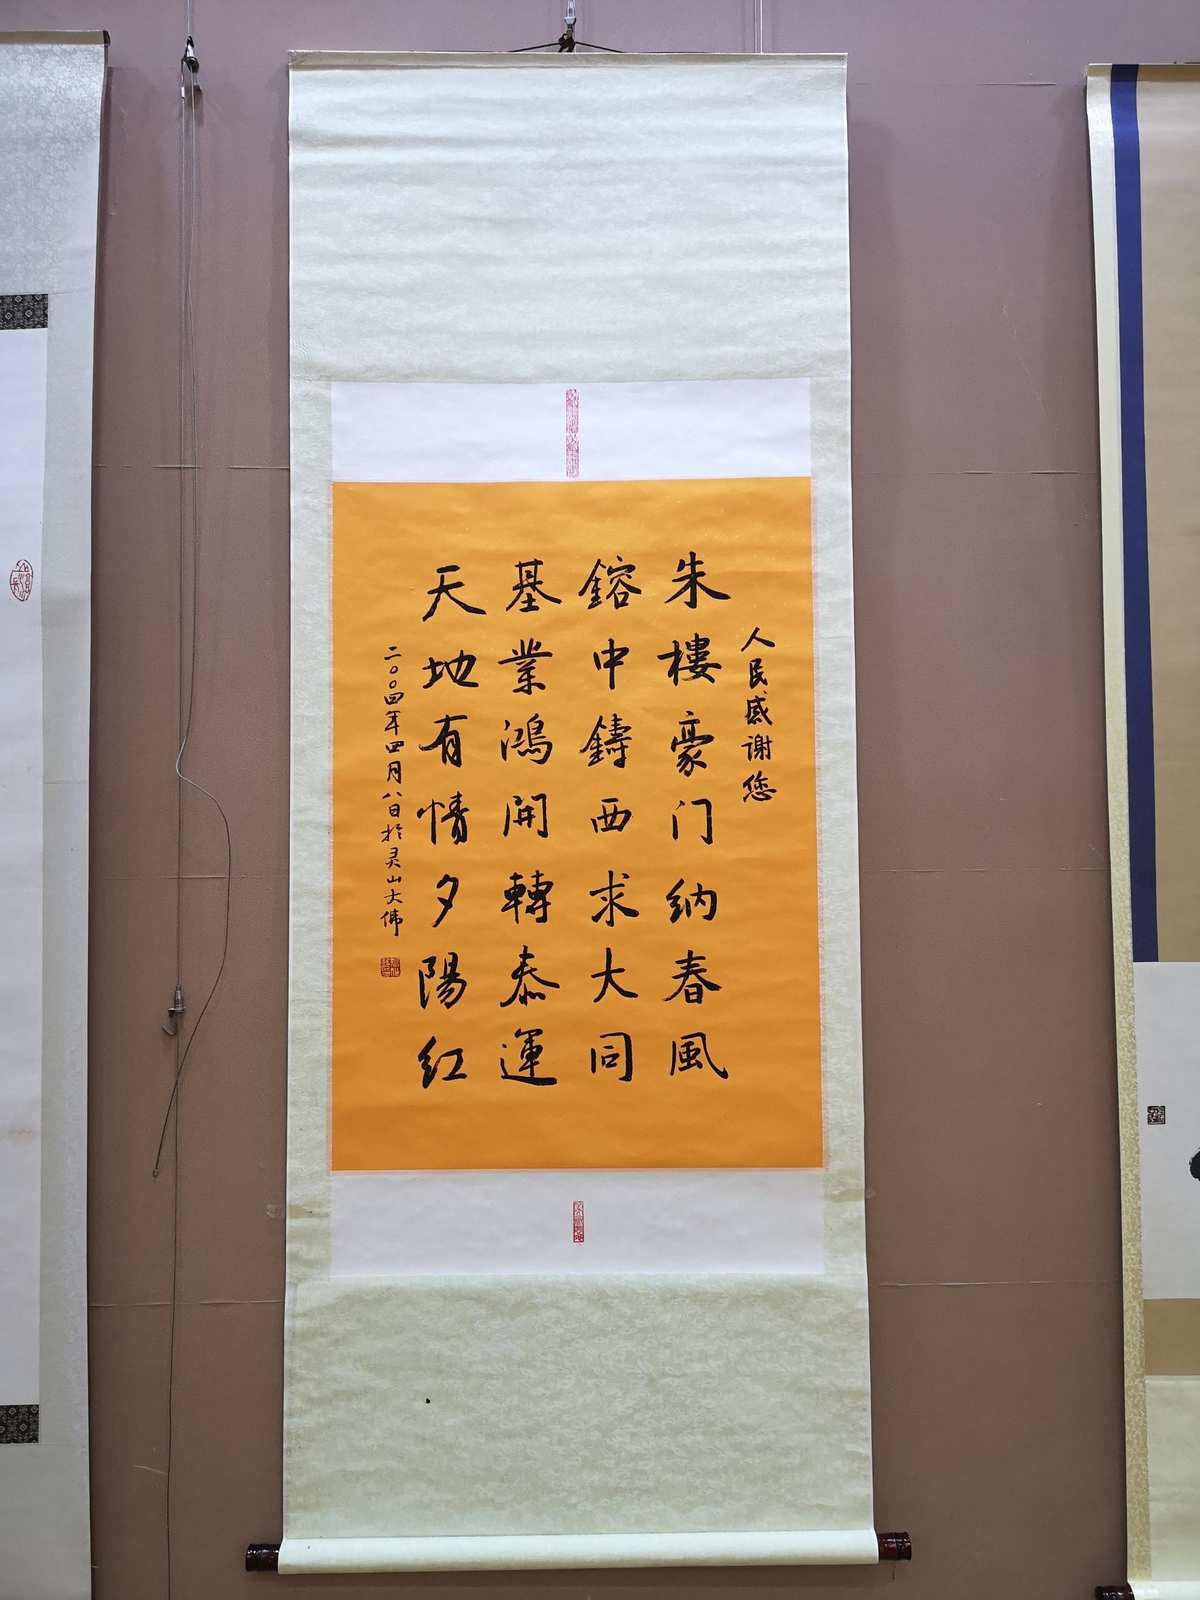 人民感谢您
朱樓豪门纳春風
鎔中鑄西求大同
基業鴻開轉泰運
天地有情夕陽红
二〇〇四年四月八日於灵山大佛